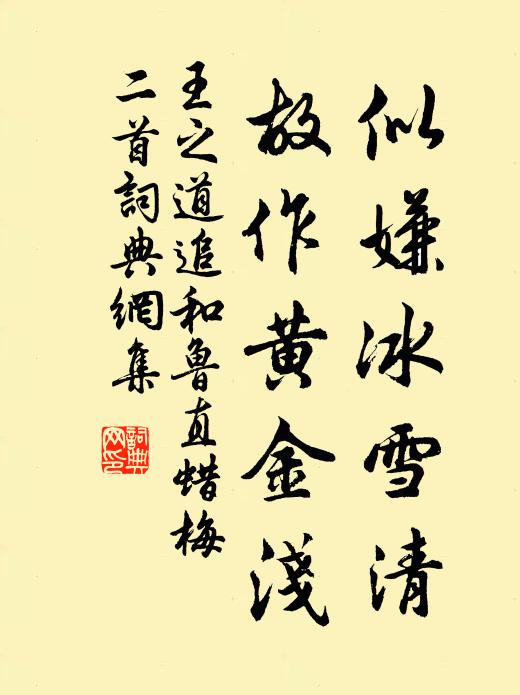 似嫌冰雪清
故作黄金淺
王之道追和魯直蜡梅
二首詞典網集
詞典網印